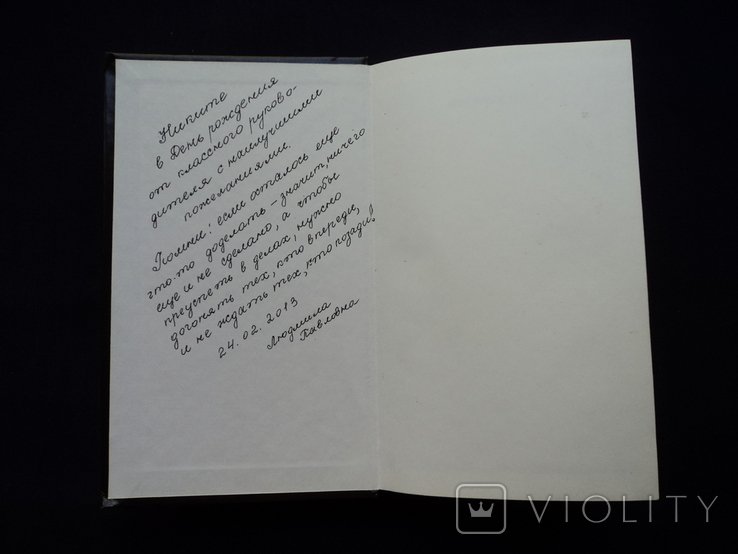 Никите
в День рождения
от классного руково-
дителя с наилучшими
пожеланиями.
Помни: если осталось еще
что-то доделать - значит, ничего
еще и не сделано, а чтобы
преуспеть в делах, нужно
догонять тех, кто впереди,
и не ждать тех, кто позади!
24.02.2013
Людмила
Павловна
VIOLITY